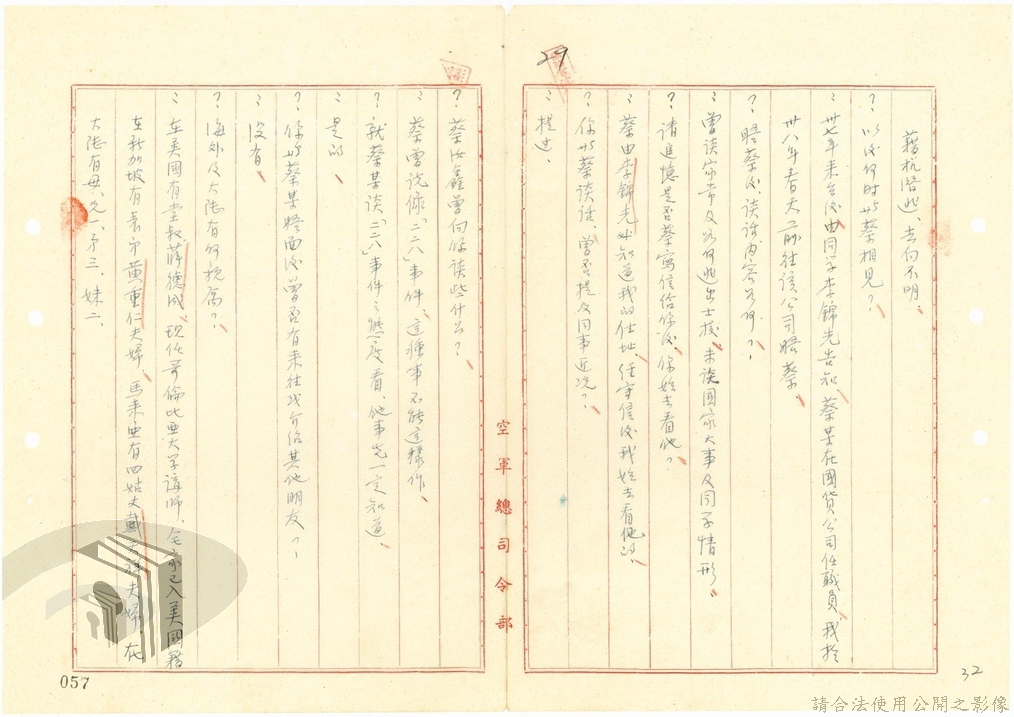 27
籍杭潛逃、去向不明、
？以後何時與蔡相見？
：卅七年來台後由同學李錦光告知、蔡某在國貨公司任職員、我於
卅八年春天前往該公司晤蔡、
？晤蔡後、談話內容為何？
：曾談家常及如何逃出士校、未談國家大事及同學情形。
？請追憶是否蔡寫信給你後、你始去看他？
：蔡由李錦光處知道我的住址、任寄信後我始去看他的、
？你與蔡談話、曾否提及同事近況？
：提過、
32
空軍總司令部
？蔡汝鑫曾向你談些什么？
：蔡曾說像「二二八」事件、這種事不能這樣作、
？就蔡某談「二二八」事件之態度看、他事先一定知道、
：是的、
？你與蔡某晤面後、曾否有來往或介紹其他朋友？
：沒有、
？海外及大陸有何親屬？
：在美國有堂叔蔣德成、現任哥倫比亞大學講師、全家已入美國籍
在新加坡有表弟黃重仁夫婦、馬來亞有四姑丈戴夫婦、在
大陸有母、兄一、弟三、妹二、
057
請合法使用公開之影像